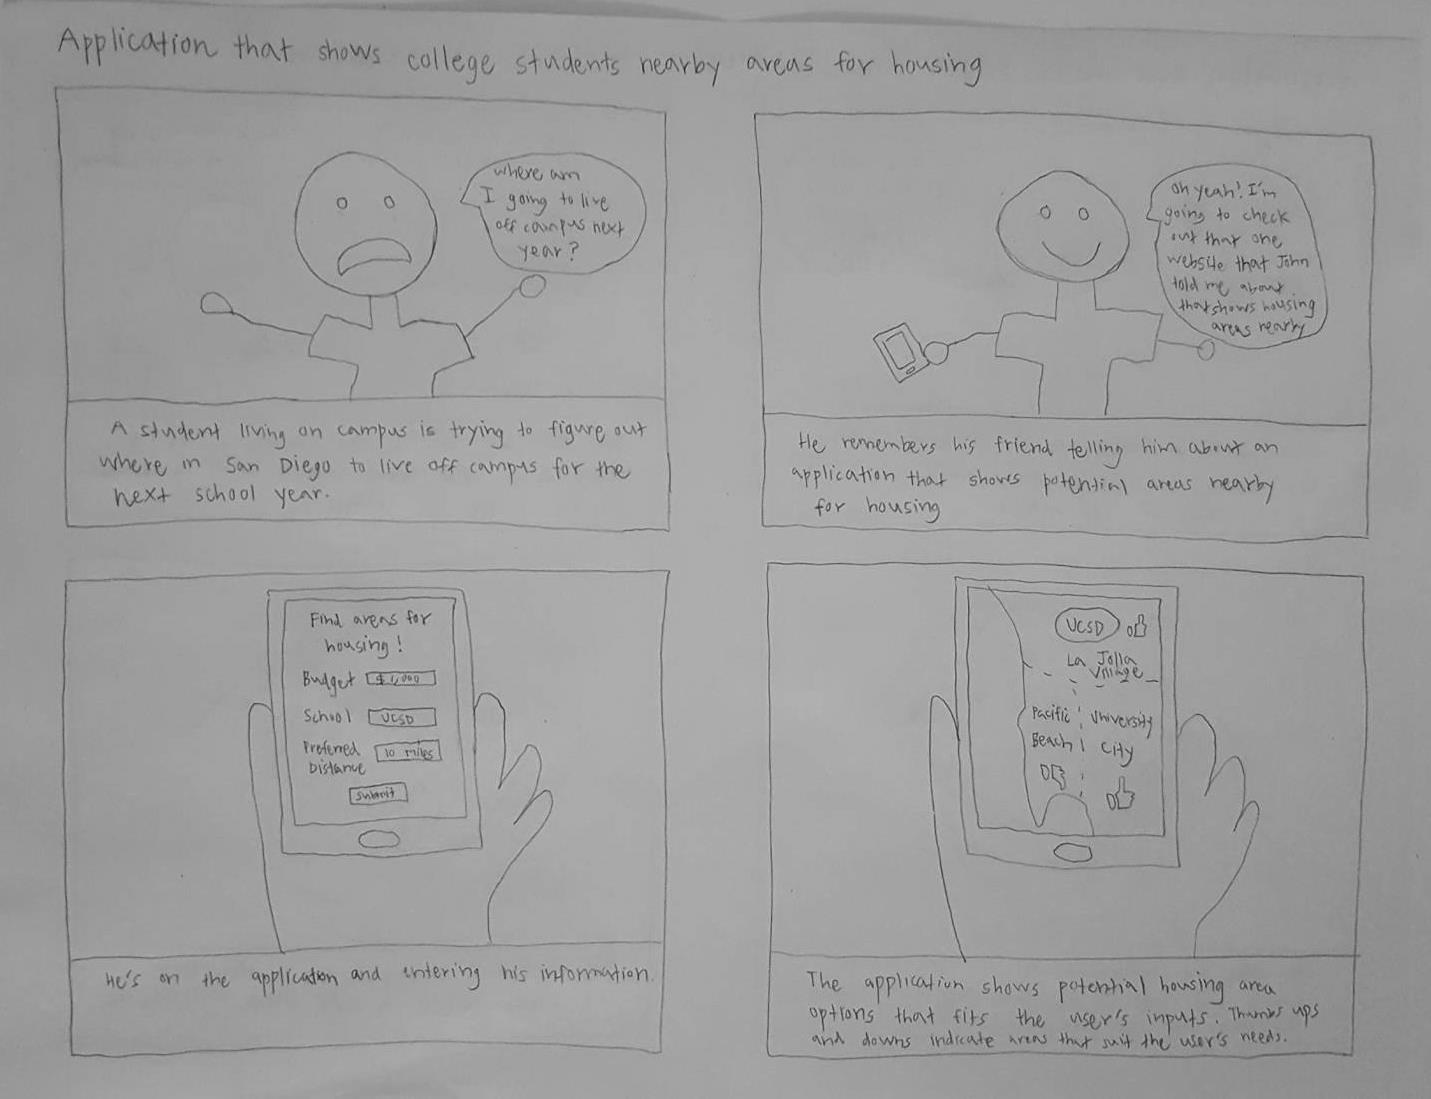 Application that shows college students nearby areas for housing
where am
I going to live
off campus next
year?
A student living on campus is trying to figure out
where in San Diego to live off campus for the
next school year.
oh yeah! I'm
going to check
out that one
website that John
told me about
that shows housing
areas nearby
He remembers his friend telling him about an
application that shows potential areas nearby
for housing
Find areas for
housing!
Budget $1,000
School UCSD
Preferred
Distance 10 miles
Submit
He's on the application and entering his information.
UCSD
La Jolla
Village
Pacific University
Beach City
The application shows potential housing area
options that fits the user's inputs. Thumbs ups
and downs indicate areas that suit the user's needs.